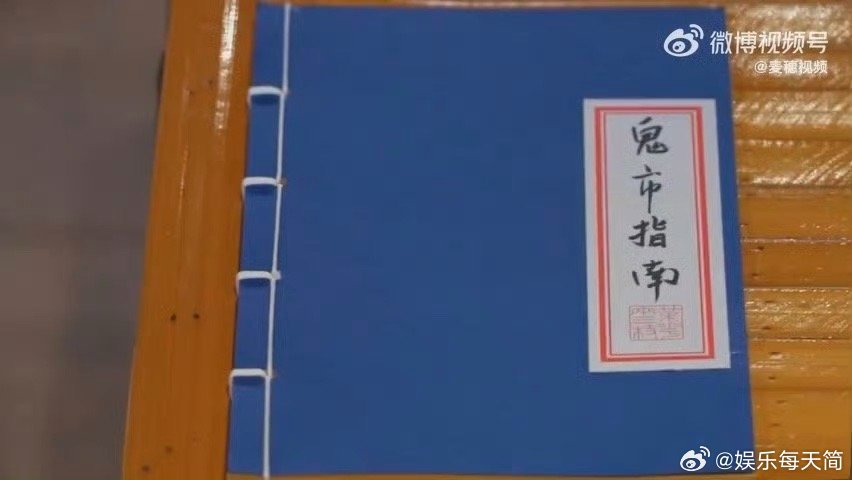 微博视频号
@麦穗视频
鬼市指南
@娱乐每天简